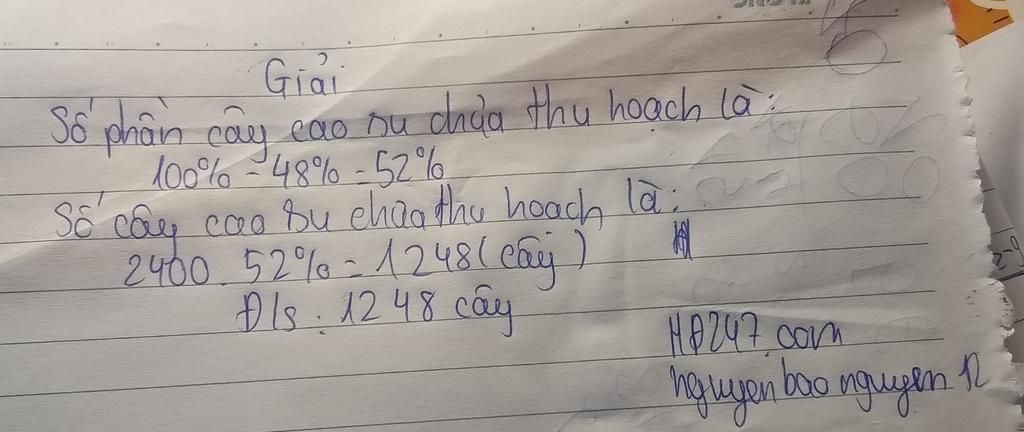 Giải
Số phần cây cao su chưa thu hoạch là:
100% - 48% = 52%
Số cây cao su chưa thu hoạch là:
2400. 52% = 1248 (cây)
Đ/s: 1248 cây
HĐ247.com
nguyenbaonguyen12